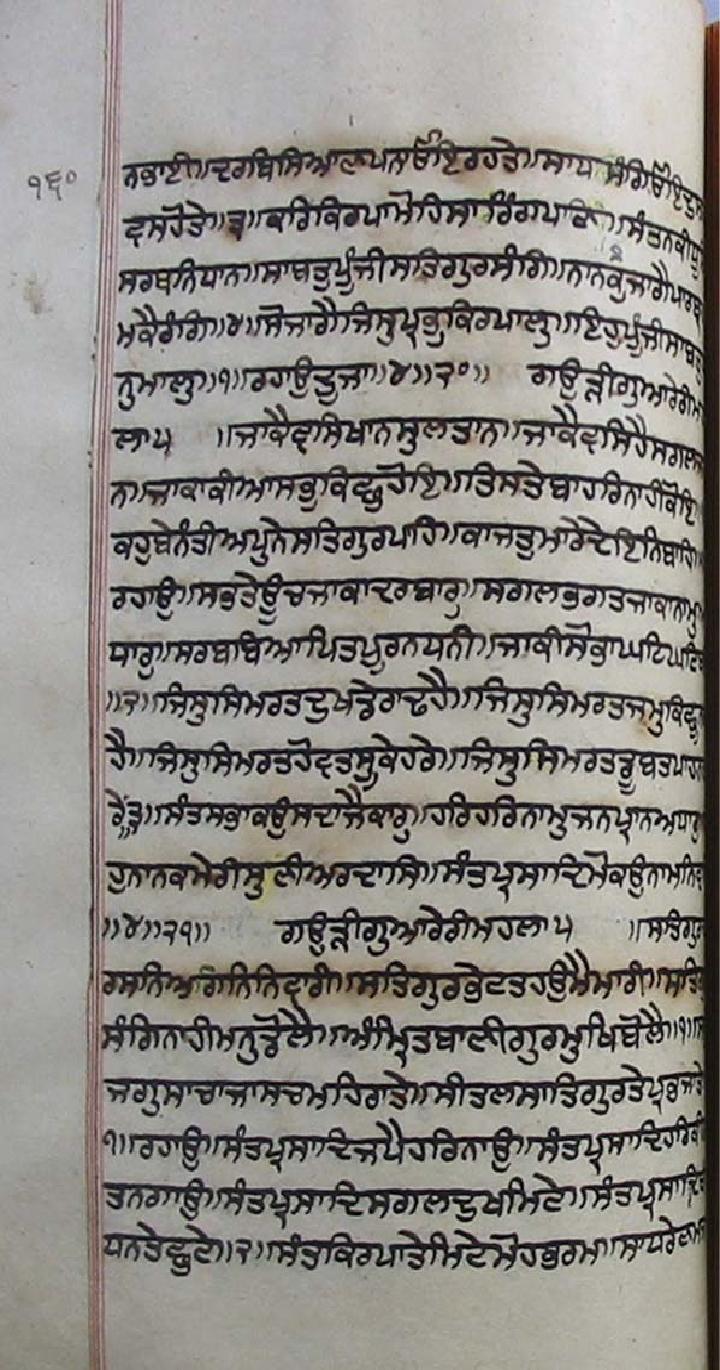 ੧੬੦
ਨਭਾਈ॥ਦਰਬਿਸਿਆਣਪਨਾਓਇਰਹਤੇ॥ਸਾਧਸੰਗਿਓਇ
ਵਸਹੋਤੇ॥੩॥ਕਰਿਕਿਰਪਾਮੋਹਿਸਾਰਿੰਗਪਾਣਿ॥ਸੰਤਨਕੀਧੂ
ਸਰਬਨਿਧਾਨ॥ਸਾਬਤੁਪੂੰਜੀਸਤਿਗੁਰਸੰਗਿ॥ਨਾਨਕੁਜਾਗੈਪਾਰਬ੍ਰ
ਮਕੈਰੰਗਿ॥੪॥ਸੋਜਾਗੈਜਿਸੁਪ੍ਰਭੁਕਿਰਪਾਲੁ॥ਇਹਪੂੰਜੀਸਾਬਤੁ
ਨੁਮਾਲੁ॥੧॥ਰਹਾਉਦੂਜਾ॥੪॥੨੦॥ ਗਉੜੀਗੁਆਰੇਰੀਮ
ਲਾ੫ ॥ਜਾਕੈਵਸਿਖਾਨਸੁਲਤਾਨ॥ਜਾਕੈਵਸਿਹੈਸਗਲਜ
ਨ॥ਜਾਕਾਕੀਆਸਭੁਕਿਛੁਹੋਇ॥ਤਿਸਤੇਬਾਹਰਿਨਾਹੀਕੋਇ
ਕਹੁਬੇਨੰਤੀਅਪੁਨੇਸਤਿਗੁਰਪਾਹਿ॥ਕਾਜਤੁਮਾਰੇਦੇਇਨਿਬਾਹਿ॥
ਰਹਾਉ॥ਸਭਤੇਊਚਜਾਕਾਦਰਬਾਰੁ॥ਸਗਲਭਗਤਜਾਕਾਨਾਮੁ
ਧਾਰੁ॥ਸਰਬਬਿਆਪਿਤਪੂਰਨਧਨੀ॥ਜਾਕੀਸੋਭਾਘਟਿਘਟਿ
॥੨॥ਜਿਸੁਸਿਮਰਤਦੁਖਡੇਰਾਢਹੈ॥ਜਿਸੁਸਿਮਰਤਜਮੁਕਿਛੂ
ਹੈ॥ਜਿਸੁਸਿਮਰਤਹੋਵਤਸੂਕੇਹਰੇ॥ਜਿਸੁਸਿਮਰਤਡੂਬਤਪਾਹ
ਰੇ॥੩॥ਸੰਤਸਭਾਕਉਸਦਾਜੈਕਾਰੁ॥ਹਰਿਹਰਿਨਾਮੁਜਨਪ੍ਰਾਨਅਧਾਰੁ
ਹੁਨਾਨਕਮੇਰੀਸੁਣੀਅਰਦਾਸਿ॥ਸੰਤਪ੍ਰਸਾਦਿਮੋਕਉਨਾਮਨਿਵ
॥੪॥੨੧॥ ਗਉੜੀਗੁਆਰੇਰੀਮਹਲਾ੫ ॥ਸਤਿਗੁਰ
ਰਸਨਿਅਗਿਨਿਨਿਵਾਰੀ॥ਸਤਿਗੁਰਭੇਟਤਹਉਮੈਮਾਰੀ॥ਸਤਿਗੁ
ਸੰਗਿਨਾਹੀਮਨੁਡੋਲੈ॥ਅੰਮ੍ਰਿਤਬਾਣੀਗੁਰਮੁਖਿਬੋਲੈ॥੧॥ਸ
ਜਗੁਸਾਚਾਜਾਸਚਮਹਿਰਾਤੇ॥ਸੀਤਲਸਾਤਿਗੁਰਤੇਪ੍ਰਭਜਾਤੇ
੧॥ਰਹਾਉ॥ਸੰਤਪ੍ਰਸਾਦਿਜਪੈਹਰਿਨਾਉ॥ਸੰਤਪ੍ਰਸਾਦਿਹਰਿਕੀ
ਤਨਗਾਉ॥ਸੰਤਪ੍ਰਸਾਦਿਸਗਲਦੁਖਮਿਟੇ॥ਸੰਤਪ੍ਰਸਾਦਿ
ਧਨਤੇਛੁਟੇ॥੨॥ਸੰਤਕਿਰਪਾਤੇਮਿਟੇਮੋਹਭਰਮ॥ਸਾਧਰੇਣਮ